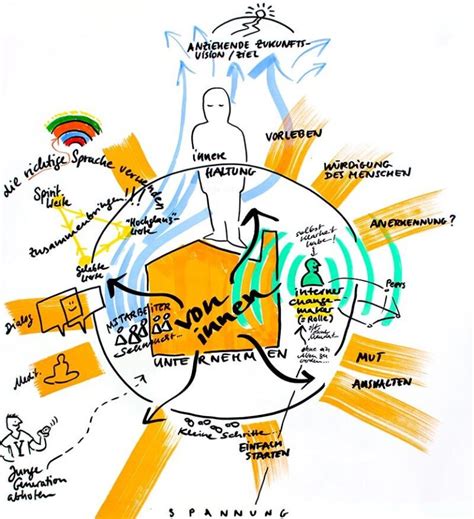 ANZIEHENDE ZUKUNFTS-
VISION / ZIEL
innere
HALTUNG
VORLEBEN
WÜRDIGUNG
DES MENSCHEN
ANERKENNUNG?
die richtige Sprache verwenden
Spirit
Werte
Zusammenbringen!!!
"Hochglanz"-
werte
Gelebte
Werte
selbst
Klarheit
haben!
interner
Change-
maker
(=Rolle)
oft ohne
Mandat
Peers
Dialog
MITARBEITER
Sehnsucht...
von
innen
UNTERNEHMEN
MUT
AUSHALTEN
Medit.
Kleine Schritte...
EINFACH
STARTEN
Y
Junge
Generation
abholen
SPANNUNG